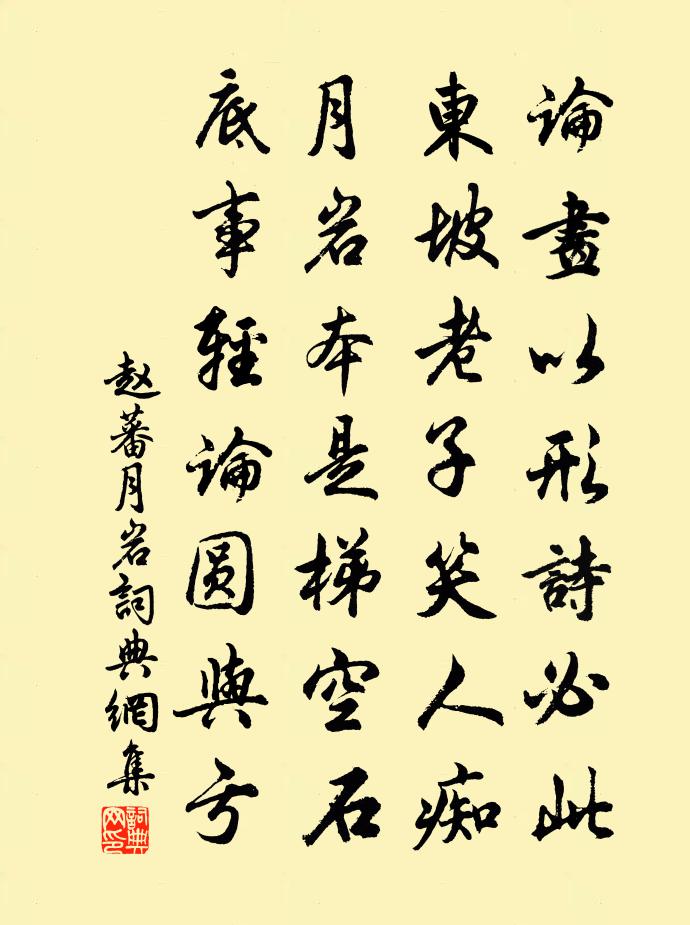 論畫以形詩必此
東坡老子笑人痴
月岩本是梯空石
底事輕論圆與亏
赵蕃月岩詞典網集
詞典网印